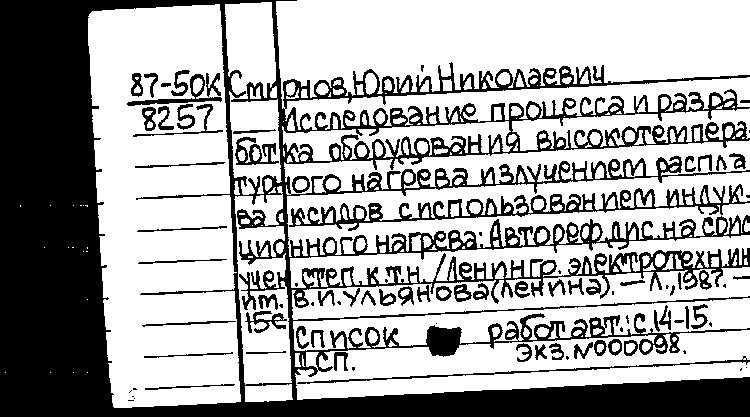 87-50К Смирнов, Юрий Николаевич.
8257 Исследование процесса и разра-
ботка оборудования высокотемпера-
турного нагрева излучением распла
ва оксидов с использованием индук-
ционного нагрева: Автореф. дис. на соис
учен. степ. к.т.н. /Ленингр. электротехн. ин
им. В.И. Ульянова (Ленина). — Л., 1987. —
15с
Список работ авт.: с. 14-15.
ДСП. Экз. №000098.